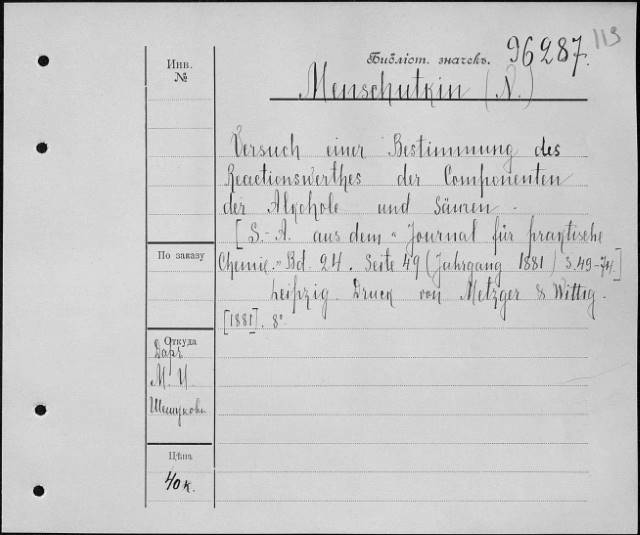 113
Библіот. значекъ. 96287.
Инв. №
Menschutkin (N.)
Versuch einer Bestimmung des
Reactionswerthes der Componenten
der Alkohole und Säuren.
[S.-A. aus dem "Journal für praktische
По заказу
Chemie." Bd. 24. Seite 49 (Jahrgang 1881) S. 49-74.]
Leipzig. Druck von Metzger & Wittig.
[1881]. 8°
Откуда
Даръ
М. И.
Цѣна
40 к.